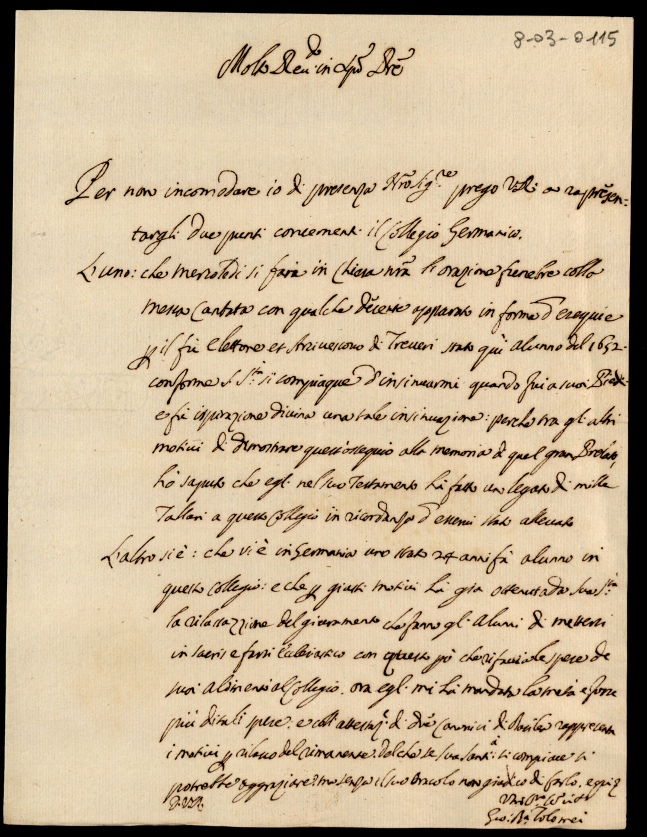 8-03-0115
Molto Reu.do in Xpo Pre
Per non incomodare io di presenza Nro Sig.re prego V.R. a rapresen-
targli due punti concernenti il Collegio Germanico.
L'uno: che Mercoledi si farà in Chiesa nrã l'orazione funebre colla
messa Cantata con qualche decente apparato in forma d'esequie
p il fu Elettore et Arcivescovo di Treveri stato quì alunno del 1652.
conforme S. S.tà si compiaque d'insinuarmi quando fui a suoi Piedi
e fù ispirazione divina una tale insinuazione: perche tra gl'altri
motivi di dimostrare quest'ossequio alla memoria di quel gran Prelato,
hò saputo che egli nel suo Testamento hà fatto un legato di mille
Tallari a questo Collegio in ricordanza d'esserui stato alleuato
L'altro si è: che vi è in Germania uno stato 24 anni fà alunno in
questo collegio: e che p giusti motivi hà già ottenuta da Sua S.tà
la rilassazzione del giuramento che fanno gl'Alunni di mettersi
in sacris e farsi Ecclesiastico con questo però che rifaccia le spese de
suoi alimenti al Collegio. ora egli mi hà mandato la metà e forse
più di tali spese. e coll'attestaz.e di due Canonici di Basilea rappresenta
i motivi p rilasso del rimanente. Del che se sua Santà si compiace si
potrebbe aggraziare: ma senza il suo oracolo non giudico di farlo. e qui
di V.R.
Gio: Ba Tolomei